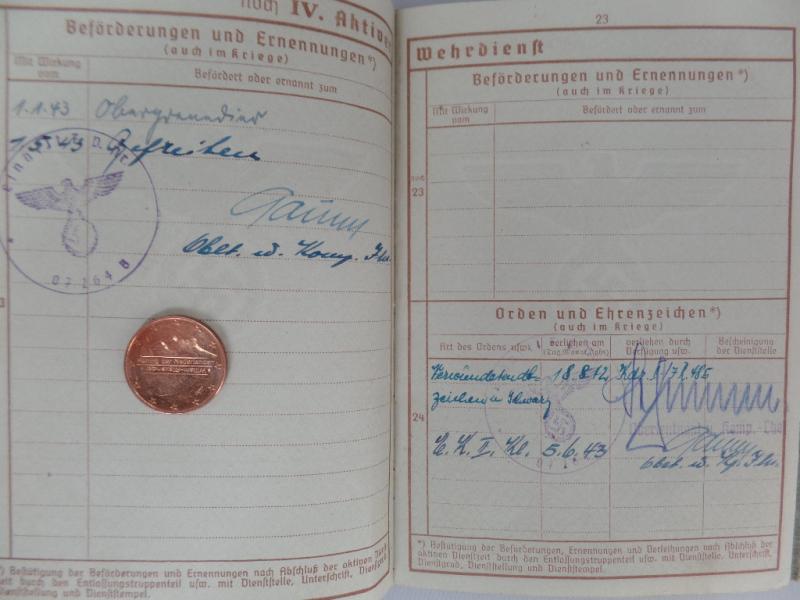 noch IV. Aktiver
Beförderungen und Ernennungen*)
(auch im Kriege)
Mit Wirkung vom
Befördert oder ernannt zum
1.1.43 Obergrenadier
43 Gefreiten
Oblt. u. Komp. Fhr.
07264 B
*) Bestätigung der Beförderungen und Ernennungen nach Abschluß der aktiven
durch den Entlassungstruppenteil usw. mit Dienststelle, Unterschrift,
und Dienststempel.
23
Wehrdienst
Beförderungen und Ernennungen*)
(auch im Kriege)
Mit Wirkung vom
Befördert oder ernannt zum
23
Orden und Ehrenzeichen*)
(auch im Kriege)
Art des Ordens usw.
verliehen am
(Tag, Monat, Jahr)
verliehen durch
Verfügung usw.
Bescheinigung
der Dienststelle
Verwundetenab- 18.8.42
zeichen in Schwarz
24
E. K. II. Kl. 5.6.43
Oblt. u. Kp. Fhr.
*) Bestätigung der Beförderungen, Ernennungen und Verleihungen nach Abschluß der
aktiven Dienstzeit durch den Entlassungstruppenteil usw. mit Dienststelle, Unterschrift,
Dienstgrad, Dienststellung und Dienststempel.